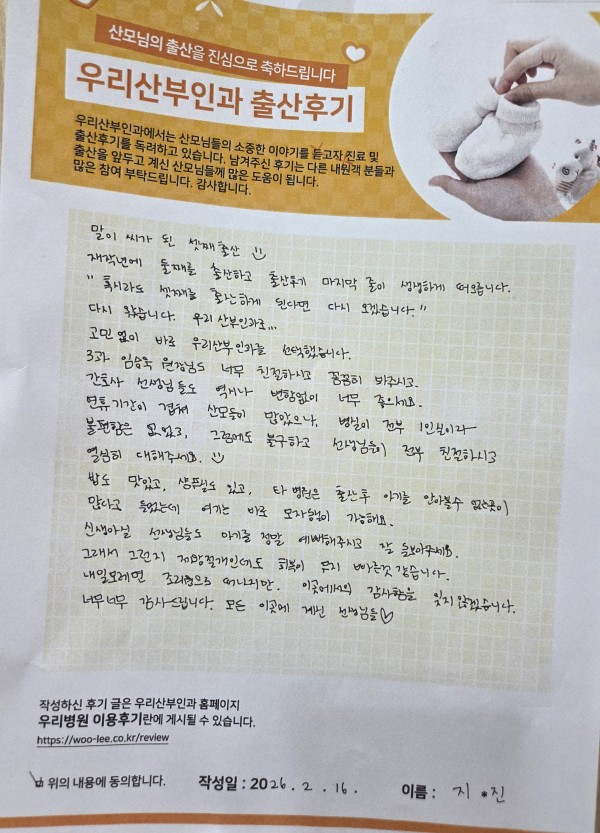 산모님의 출산을 진심으로 축하드립니다
우리산부인과 출산후기
우리산부인과에서는 산모님들의 소중한 이야기를 듣고자 진료 및
출산후기를 독려하고 있습니다. 남겨주신 후기는 다른 내원객 분들과
출산을 앞두고 계신 산모님들께 많은 도움이 됩니다.
많은 참여 부탁드립니다. 감사합니다.
말이 씨가 된 셋째출산
재작년에 둘째를 출산하고 출산후기 마지막 줄이 생생하게 떠오릅니다.
"혹시라도 셋째를 출산하게 된다면 다시 오겠습니다."
다시 왔습니다. 우리산부인과로...
고민없이 바로 우리산부인과를 선택했습니다.
3과 임승욱 원장님도 너무 친절하시고 꼼꼼히 봐주시고.
간호사 선생님들도 역시나 변함없이 너무 좋으세요.
연휴기간이 겹쳐 산모들이 많았으나, 병실이 전부 1인실이라
불편함은 없었고, 그럼에도 불구하고 선생님들이 전부 친절하시고
열심히 대해주세요.
밥도 맛있고, 샴푸실도 있고, 타 병원은 출산후 아기를 안아볼수 없는곳이
많다고 들었는데 여기는 바로 모자동실이 가능해요.
신생아실 선생님들도 아기를 정말 예뻐해주시고 잘 돌봐주세요.
그래서 그런지 제왕절개인데도 회복이 무지 빠른것 같습니다.
내일모레면 조리원으로 떠나지만. 이곳에서의 감사함을 잊지 않겠습니다.
너무너무 감사드립니다. 모든 이곳에 계신 선생님들♡
작성하신 후기 글은 우리산부인과 홈페이지
우리병원 이용후기란에 게시될 수 있습니다.
https://woo-lee.co.kr/review
위의 내용에 동의합니다. 작성일 : 2026. 2. 16. 이름 : 지*진